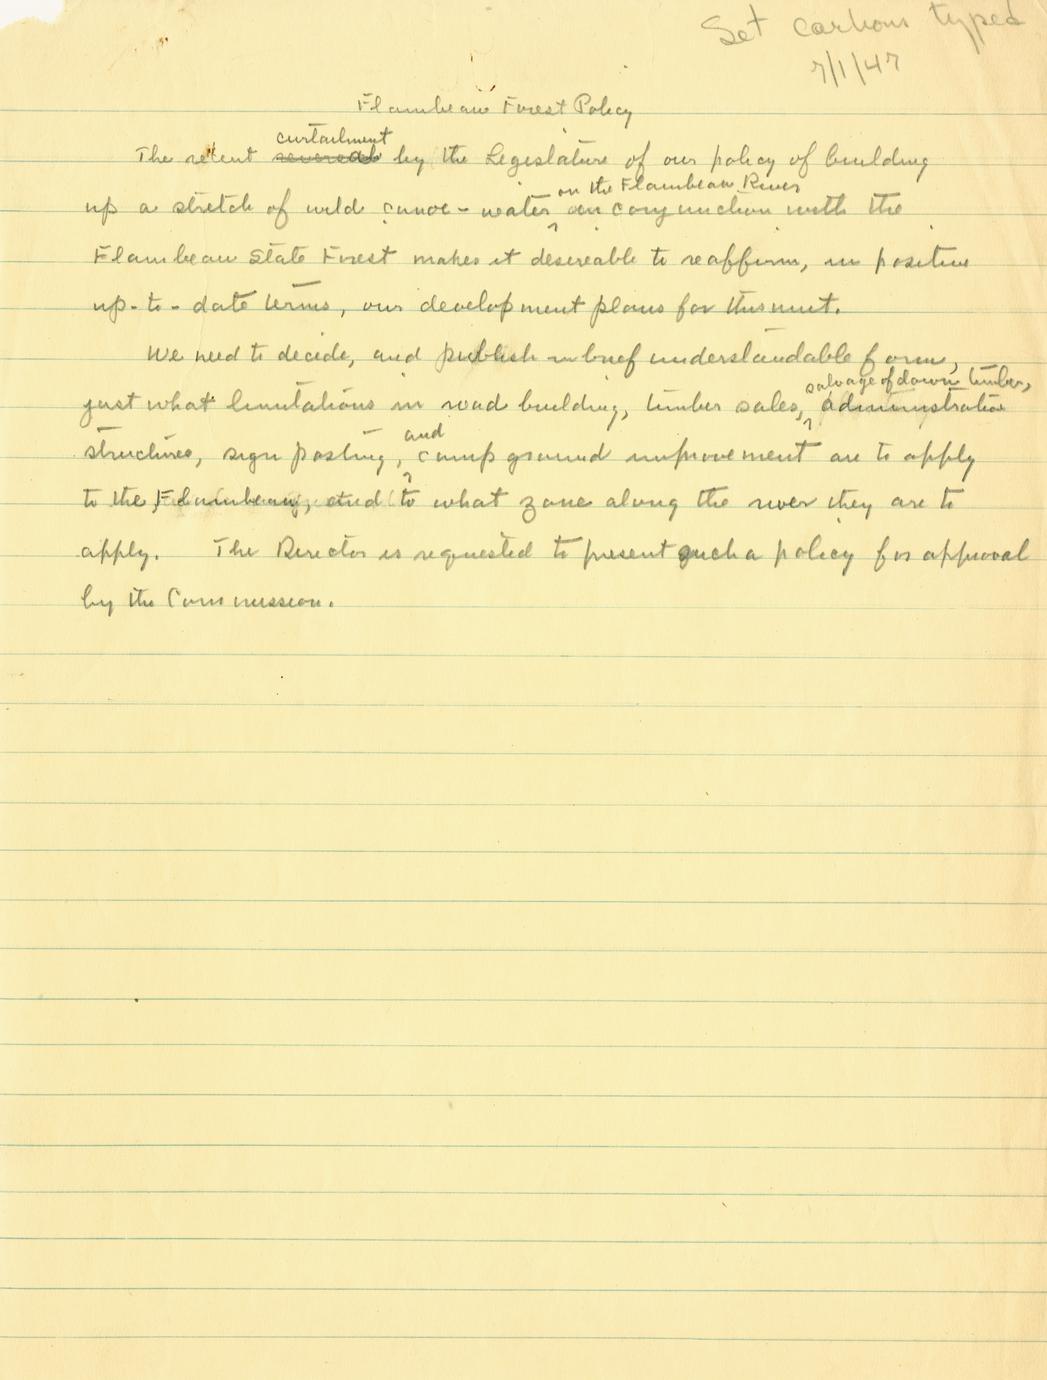 Set carbons typed
7/1/47
Flambeau Forest Policy
curtailment
The recent reversal by the Legislature of our policy of building
on the Flambeau River
up a stretch of wild canoe-water in conjunction with the
Flambeau State Forest makes it desireable to reaffirm, in positive
up-to-date terms, our development plans for this unit.
We need to decide, and publish in brief understandable form,
salvage of down timber,
just what limitations in road building, timber sales, administrative
and
structures, sign posting, camp ground improvement are to apply
to the Flambeau, and to what zone along the river they are to
apply. The Director is requested to present such a policy for approval
by the Commission.